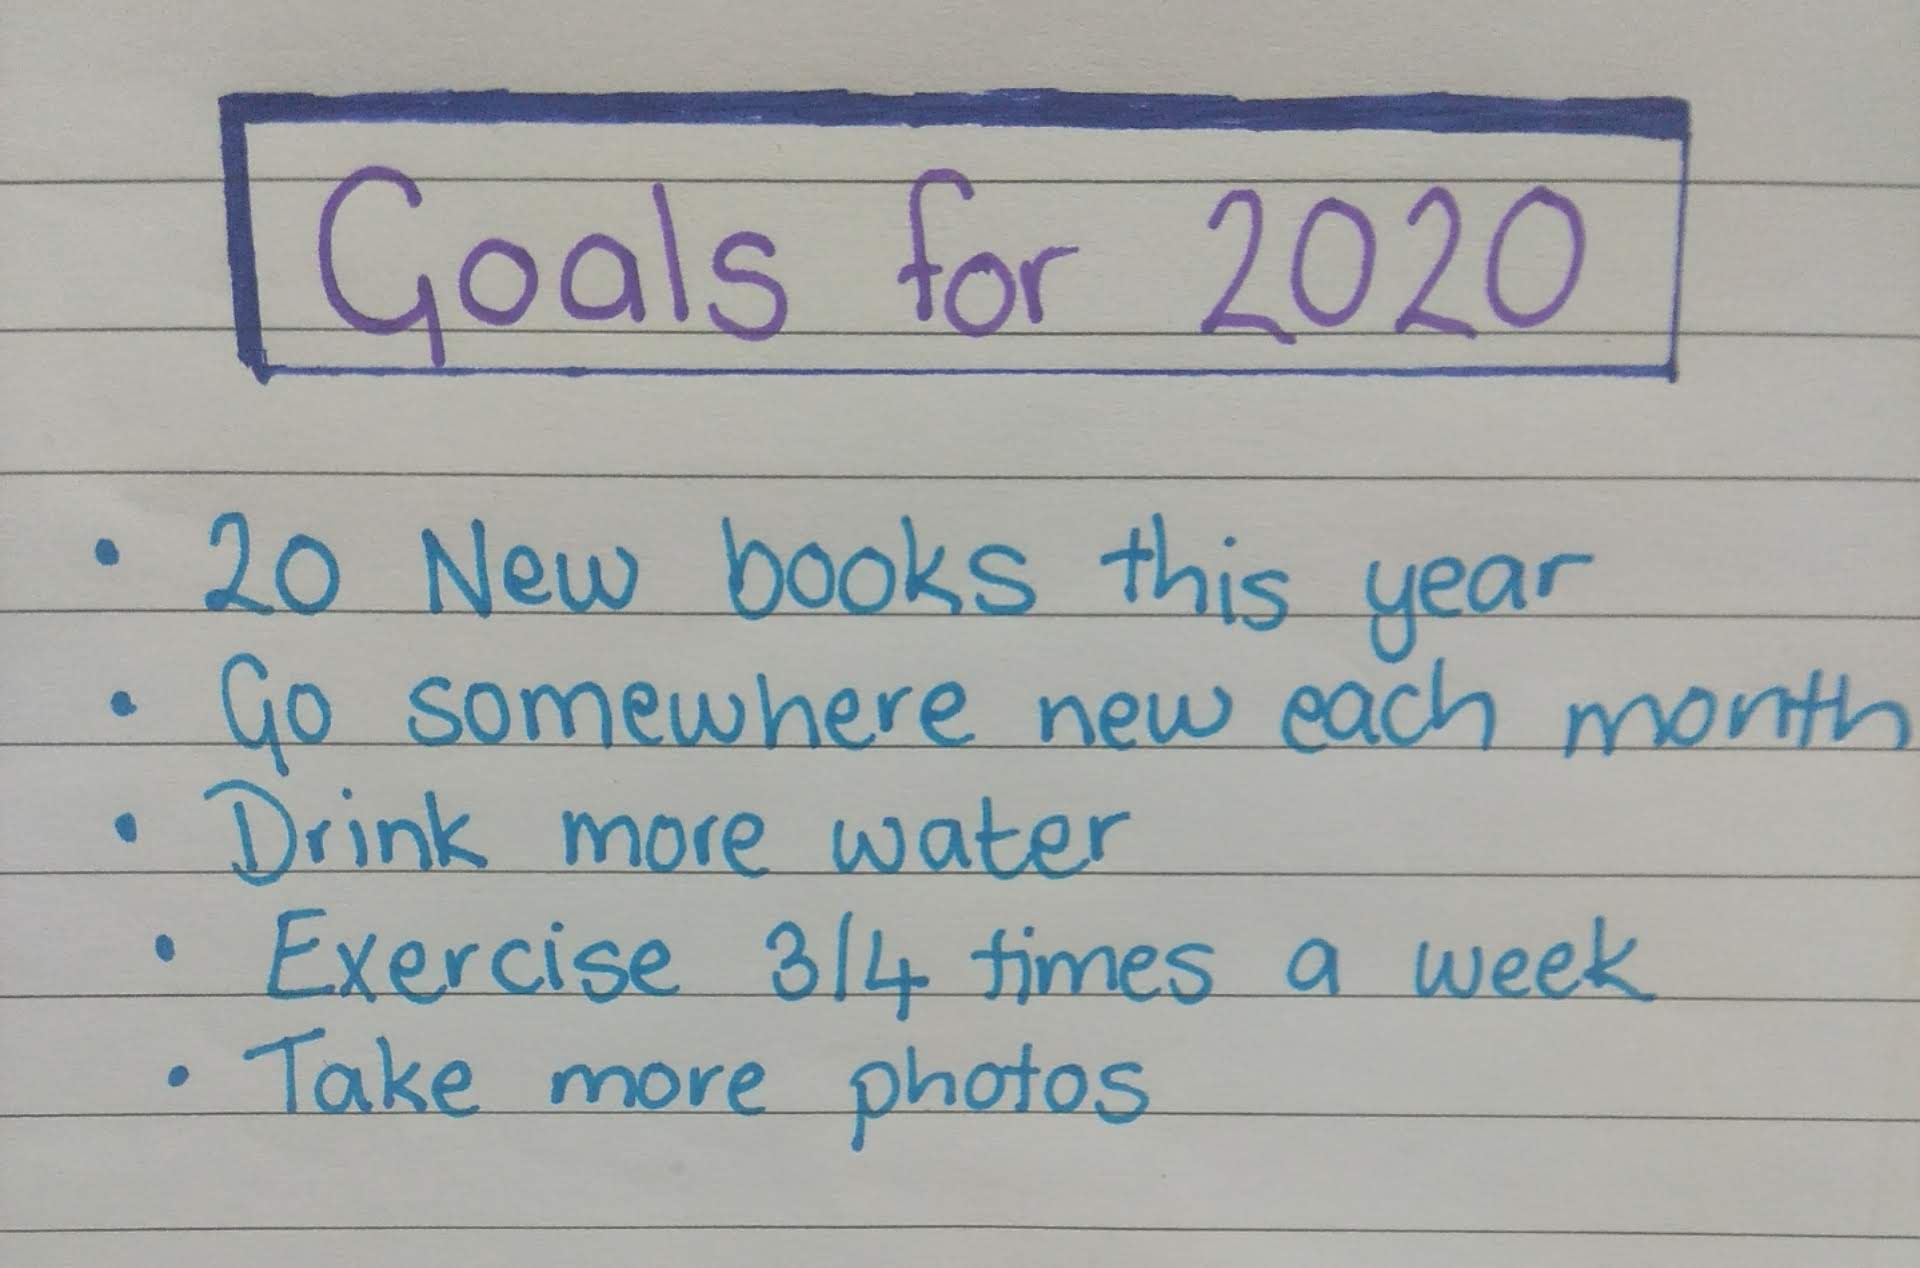 Goals for 2020
• 20 New books this year
• Go somewhere new each month
• Drink more water
• Exercise 3/4 times a week
• Take more photos